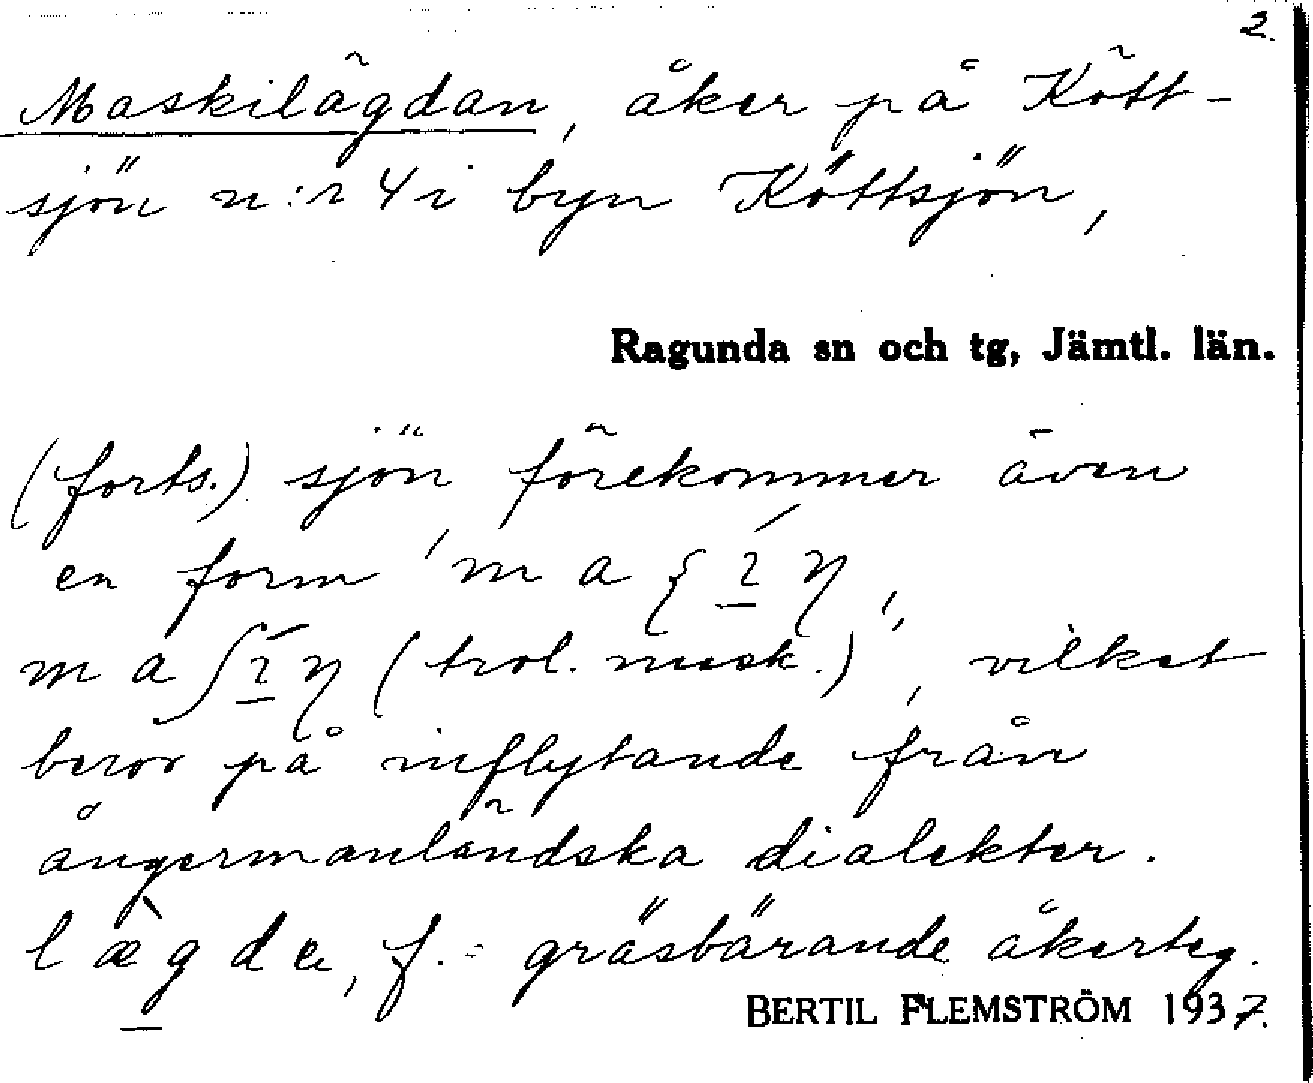 2.
Maskilägdan, åker på Kött-
sjön n:r 4 i byn Köttsjön,
Ragunda sn och tg, Jämtl. län.
(forts.) sjön förekommer även
en form
(trol. mask.), vilket
beror på inflytande från
ångermanländska dialekter.
lægda, f. = gräsbärande åkerteg.
BERTIL FLEMSTRÖM 1937.